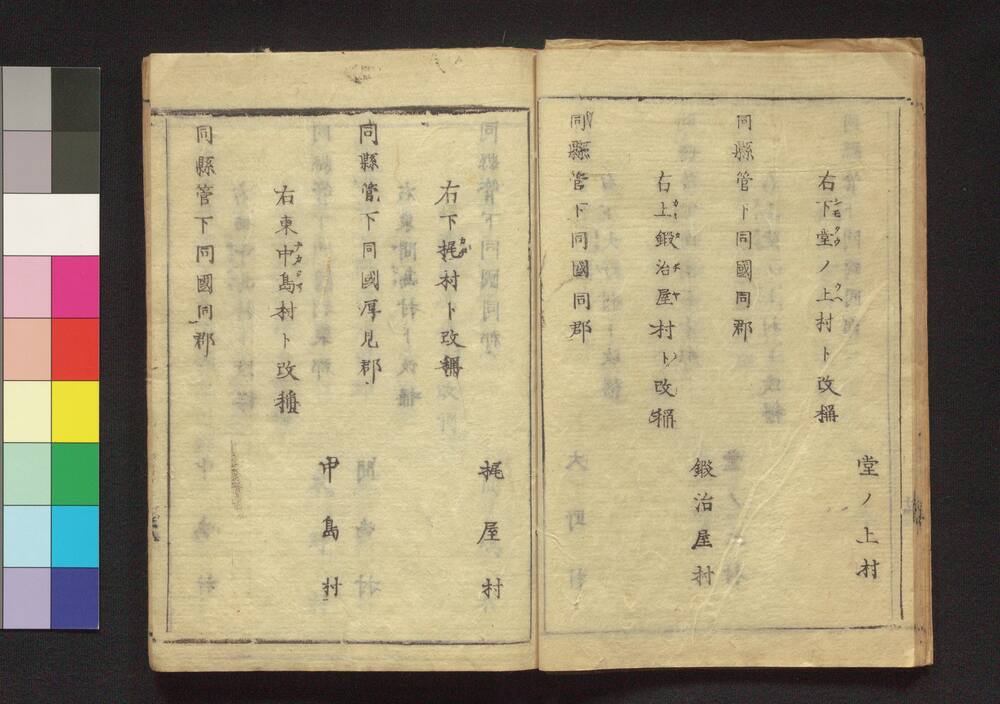 堂ノ上村
右下堂ノ上村ト改稱
同縣管下同國同郡
鍜治屋村
右上鍜治屋村ト改稱
同縣管下同國同郡
梶屋村
右下梶村ト改稱
同縣管下同國厚見郡
中島村
右東中島村ト改稱
同縣管下同國同郡